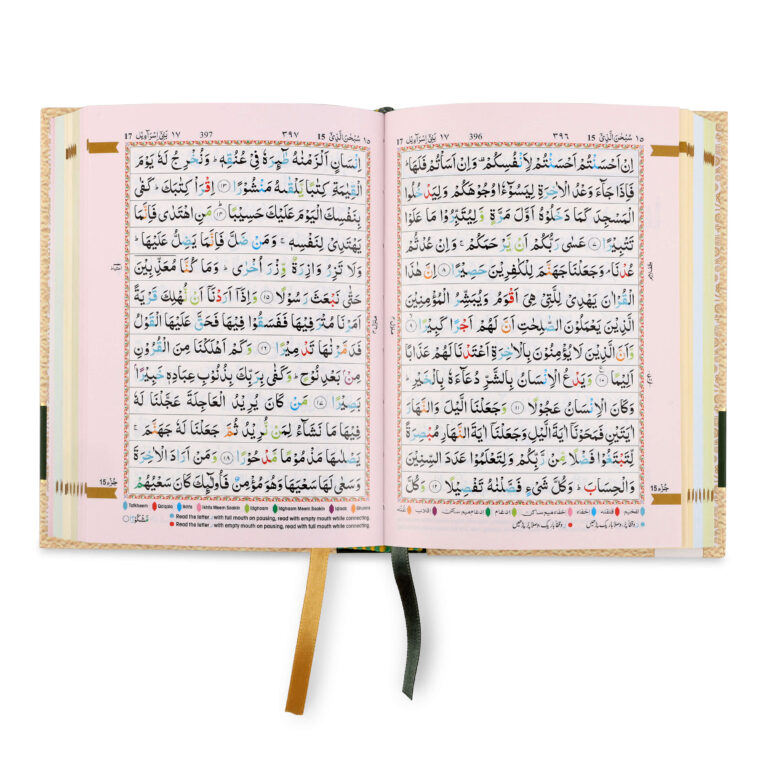 ١٥ سُبْحٰنَ الَّذِیْۤ 15 ٣٩٦ 396 ١٧ بَنِیْۤ اِسْرَآءِیْل 17
اِنْ اَحْسَنْتُمْ اَحْسَنْتُمْ لِاَنْفُسِكُمْ ۫ وَاِنْ اَسَاْتُمْ فَلَهَا ؕ
فَاِذَا جَآءَ وَعْدُ الْاٰخِرَةِ لِیَسُوْٓءٗا وُجُوْهَكُمْ وَلِیَدْخُلُوا
الْمَسْجِدَ كَمَا دَخَلُوْهُ اَوَّلَ مَرَّةٍ وَّلِیُتَبِّرُوْا مَا عَلَوْا
تَتْبِیْرًا ﴿٧﴾ عَسٰی رَبُّكُمْ اَنْ یَّرْحَمَكُمْ ۚ وَاِنْ عُدْتُّمْ
عُدْنَا ۘ وَجَعَلْنَا جَهَنَّمَ لِلْكٰفِرِیْنَ حَصِیْرًا ﴿٨﴾ اِنَّ هٰذَا
الْقُرْاٰنَ یَهْدِیْ لِلَّتِیْ هِیَ اَقْوَمُ وَیُبَشِّرُ الْمُؤْمِنِیْنَ
الَّذِیْنَ یَعْمَلُوْنَ الصّٰلِحٰتِ اَنَّ لَهُمْ اَجْرًا كَبِیْرًا ﴿٩﴾
وَّاَنَّ الَّذِیْنَ لَا یُؤْمِنُوْنَ بِالْاٰخِرَةِ اَعْتَدْنَا لَهُمْ عَذَابًا
اَلِیْمًا ﴿١٠﴾ وَیَدْعُ الْاِنْسَانُ بِالشَّرِّ دُعَآءَهٗ بِالْخَیْرِ ؕ
وَكَانَ الْاِنْسَانُ عَجُوْلًا ﴿١١﴾ وَجَعَلْنَا الَّیْلَ وَالنَّهَارَ
اٰیَتَیْنِ فَمَحَوْنَاۤ اٰیَةَ الَّیْلِ وَجَعَلْنَاۤ اٰیَةَ النَّهَارِ مُبْصِرَةً
لِّتَبْتَغُوْا فَضْلًا مِّنْ رَّبِّكُمْ وَلِتَعْلَمُوْا عَدَدَ السِّنِیْنَ
وَالْحِسَابَ ؕ وَكُلَّ شَیْءٍ فَصَّلْنٰهُ تَفْصِیْلًا ﴿١٢﴾ وَكُلَّ
جُزء 15
١٥ سُبْحٰنَ الَّذِیْۤ 15 ٣٩٧ 397 ١٧ بَنِیْۤ اِسْرَآءِیْل 17
اِنْسَانٍ اَلْزَمْنٰهُ طٰٓئِرَهٗ فِیْ عُنُقِهٖ ؕ وَنُخْرِجُ لَهٗ یَوْمَ
الْقِیٰمَةِ كِتٰبًا یَّلْقٰىهُ مَنْشُوْرًا ﴿١٣﴾ اِقْرَاْ كِتٰبَكَ ؕ كَفٰی
بِنَفْسِكَ الْیَوْمَ عَلَیْكَ حَسِیْبًا ﴿١٤﴾ مَنِ اهْتَدٰی فَاِنَّمَا
یَهْتَدِیْ لِنَفْسِهٖ ۚ وَمَنْ ضَلَّ فَاِنَّمَا یَضِلُّ عَلَیْهَا ؕ
وَلَا تَزِرُ وَازِرَةٌ وِّزْرَ اُخْرٰی ؕ وَمَا كُنَّا مُعَذِّبِیْنَ
حَتّٰی نَبْعَثَ رَسُوْلًا ﴿١٥﴾ وَاِذَاۤ اَرَدْنَاۤ اَنْ نُّهْلِكَ قَرْیَةً
اَمَرْنَا مُتْرَفِیْهَا فَفَسَقُوْا فِیْهَا فَحَقَّ عَلَیْهَا الْقَوْلُ
فَدَمَّرْنٰهَا تَدْمِیْرًا ﴿١٦﴾ وَكَمْ اَهْلَكْنَا مِنَ الْقُرُوْنِ
مِنْۢ بَعْدِ نُوْحٍ ؕ وَكَفٰی بِرَبِّكَ بِذُنُوْبِ عِبَادِهٖ خَبِیْرًۢا
بَصِیْرًا ﴿١٧﴾ مَنْ كَانَ یُرِیْدُ الْعَاجِلَةَ عَجَّلْنَا لَهٗ
فِیْهَا مَا نَشَآءُ لِمَنْ نُّرِیْدُ ثُمَّ جَعَلْنَا لَهٗ جَهَنَّمَ ۚ
یَصْلٰىهَا مَذْمُوْمًا مَّدْحُوْرًا ﴿١٨﴾ وَمَنْ اَرَادَ الْاٰخِرَةَ
وَسَعٰی لَهَا سَعْیَهَا وَهُوَ مُؤْمِنٌ فَاُولٰٓئِكَ كَانَ سَعْیُهُمْ
جُزء 15
Tafkheem Qalqala Ikhfa Ikhfa Meem Saakin Idghaam Idghaam Meem Saakin Iqlaab Ghunna
مَّشْكُوْرًا ﴿١٩﴾
Read the letter : with full mouth on pausing, read with empty mouth while connecting.
Read the letter : with empty mouth on pausing, read with full mouth while connecting.